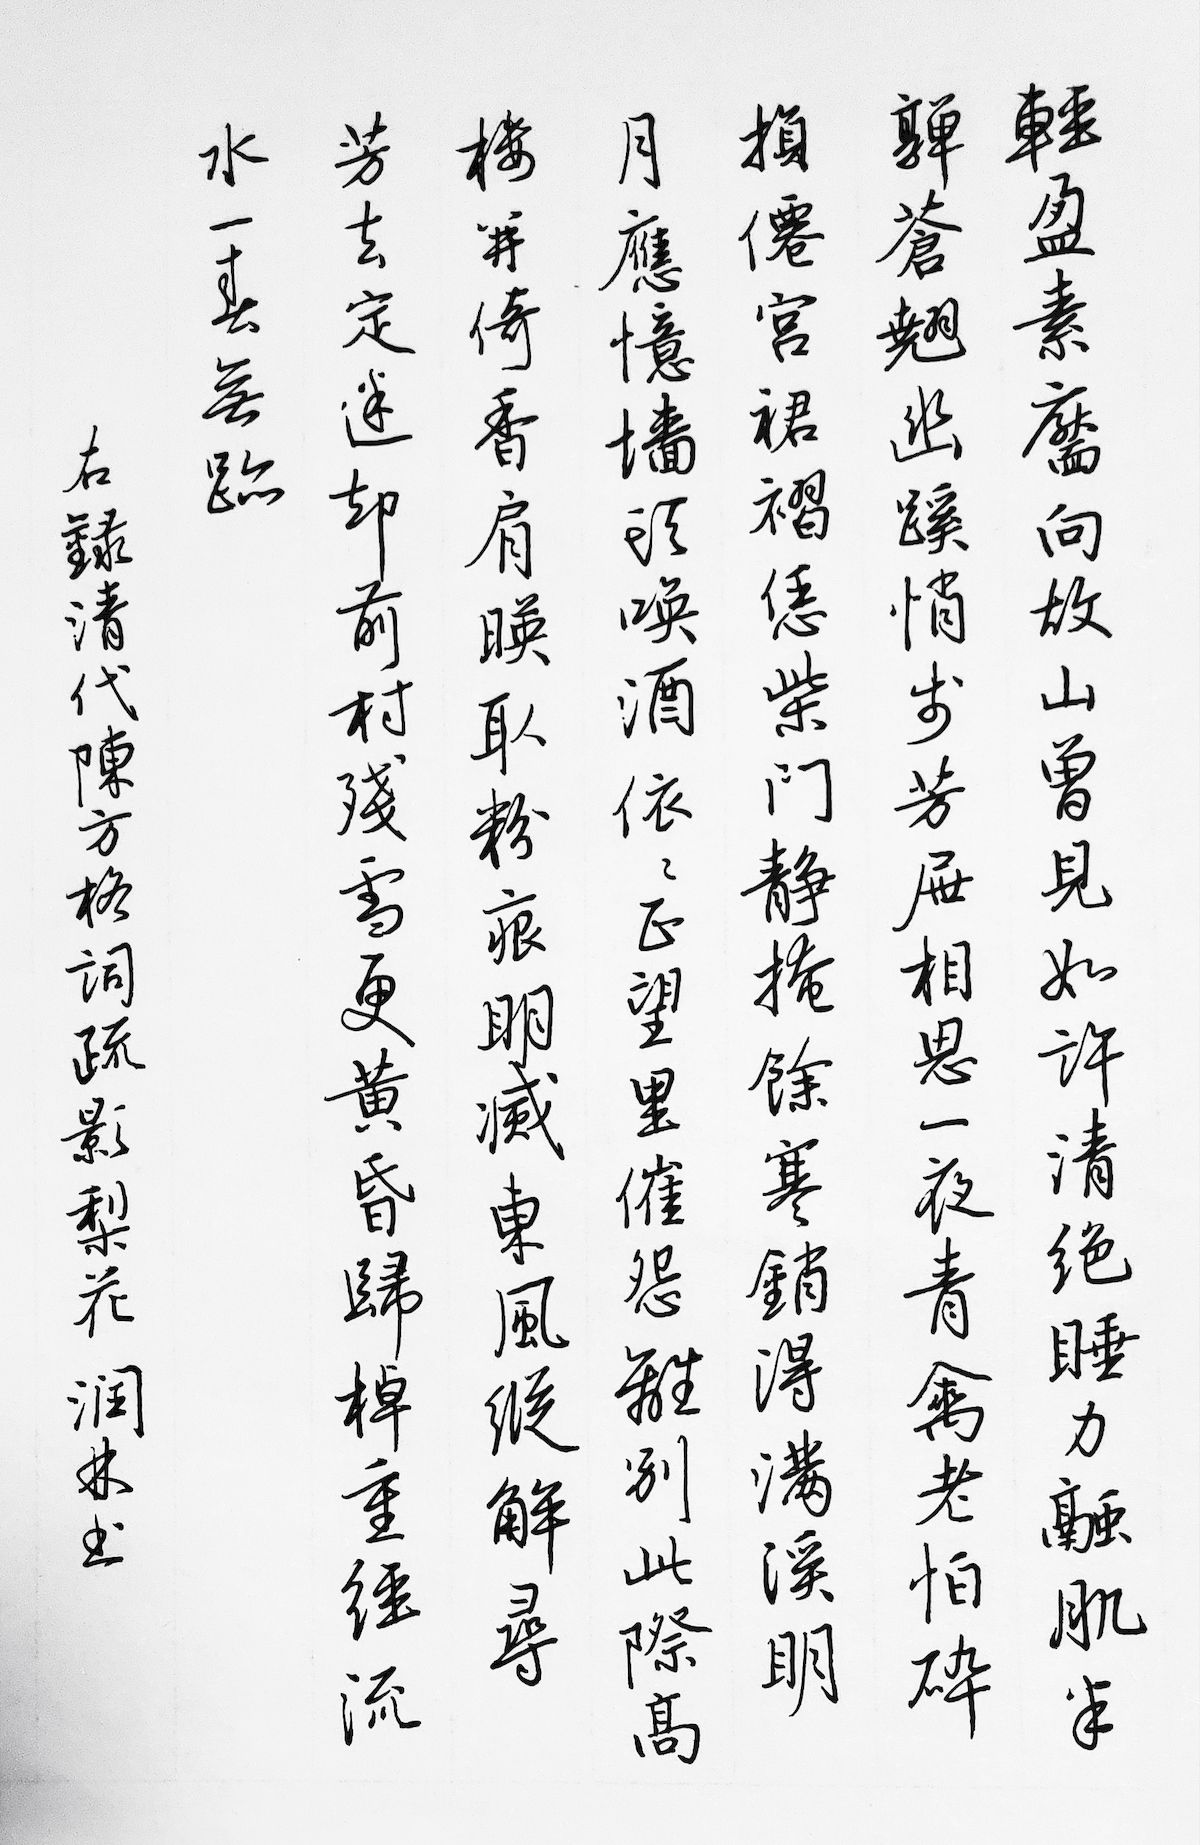 輕盈素靨向故山曾見如許清絕睡力融肌半
嚲蒼翹幽蹊悄步芳屜相思一夜青禽老怕碎
損僊宮裙褶恁柴門靜掩餘寒銷得滿溪明
月應憶墻頭喚酒依〻正望里催怨離別此際高
楼并倚香肩暎取粉痕明滅東風縱解尋
芳去定迷却前村殘雪更黄昏歸棹重經流
水一春無跡
右録清代陳方格詞疏影梨花 润林书